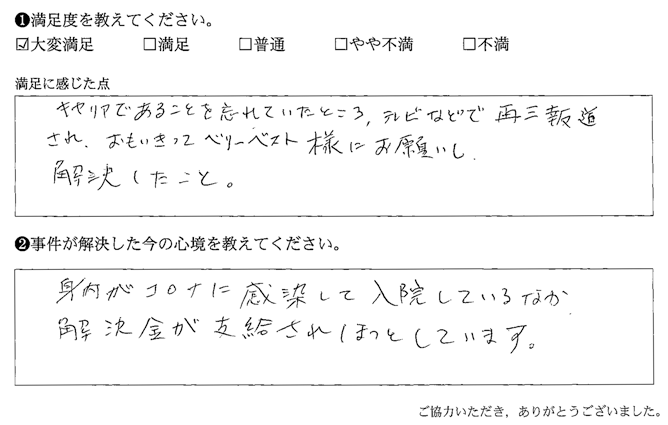 ❶満足度を教えてください。
☑大変満足 □満足 □普通 □やや不満 □不満
満足に感じた点
キャリアであることを忘れていたところ，テレビなどで再三報道
され、おもいきってベリーベスト様にお願いし
解決したこと。
❷事件が解決した今の心境を教えてください。
身内がコロナに感染して入院しているなか
解決金が支給されほっとしています。
ご協力いただき，ありがとうございました。